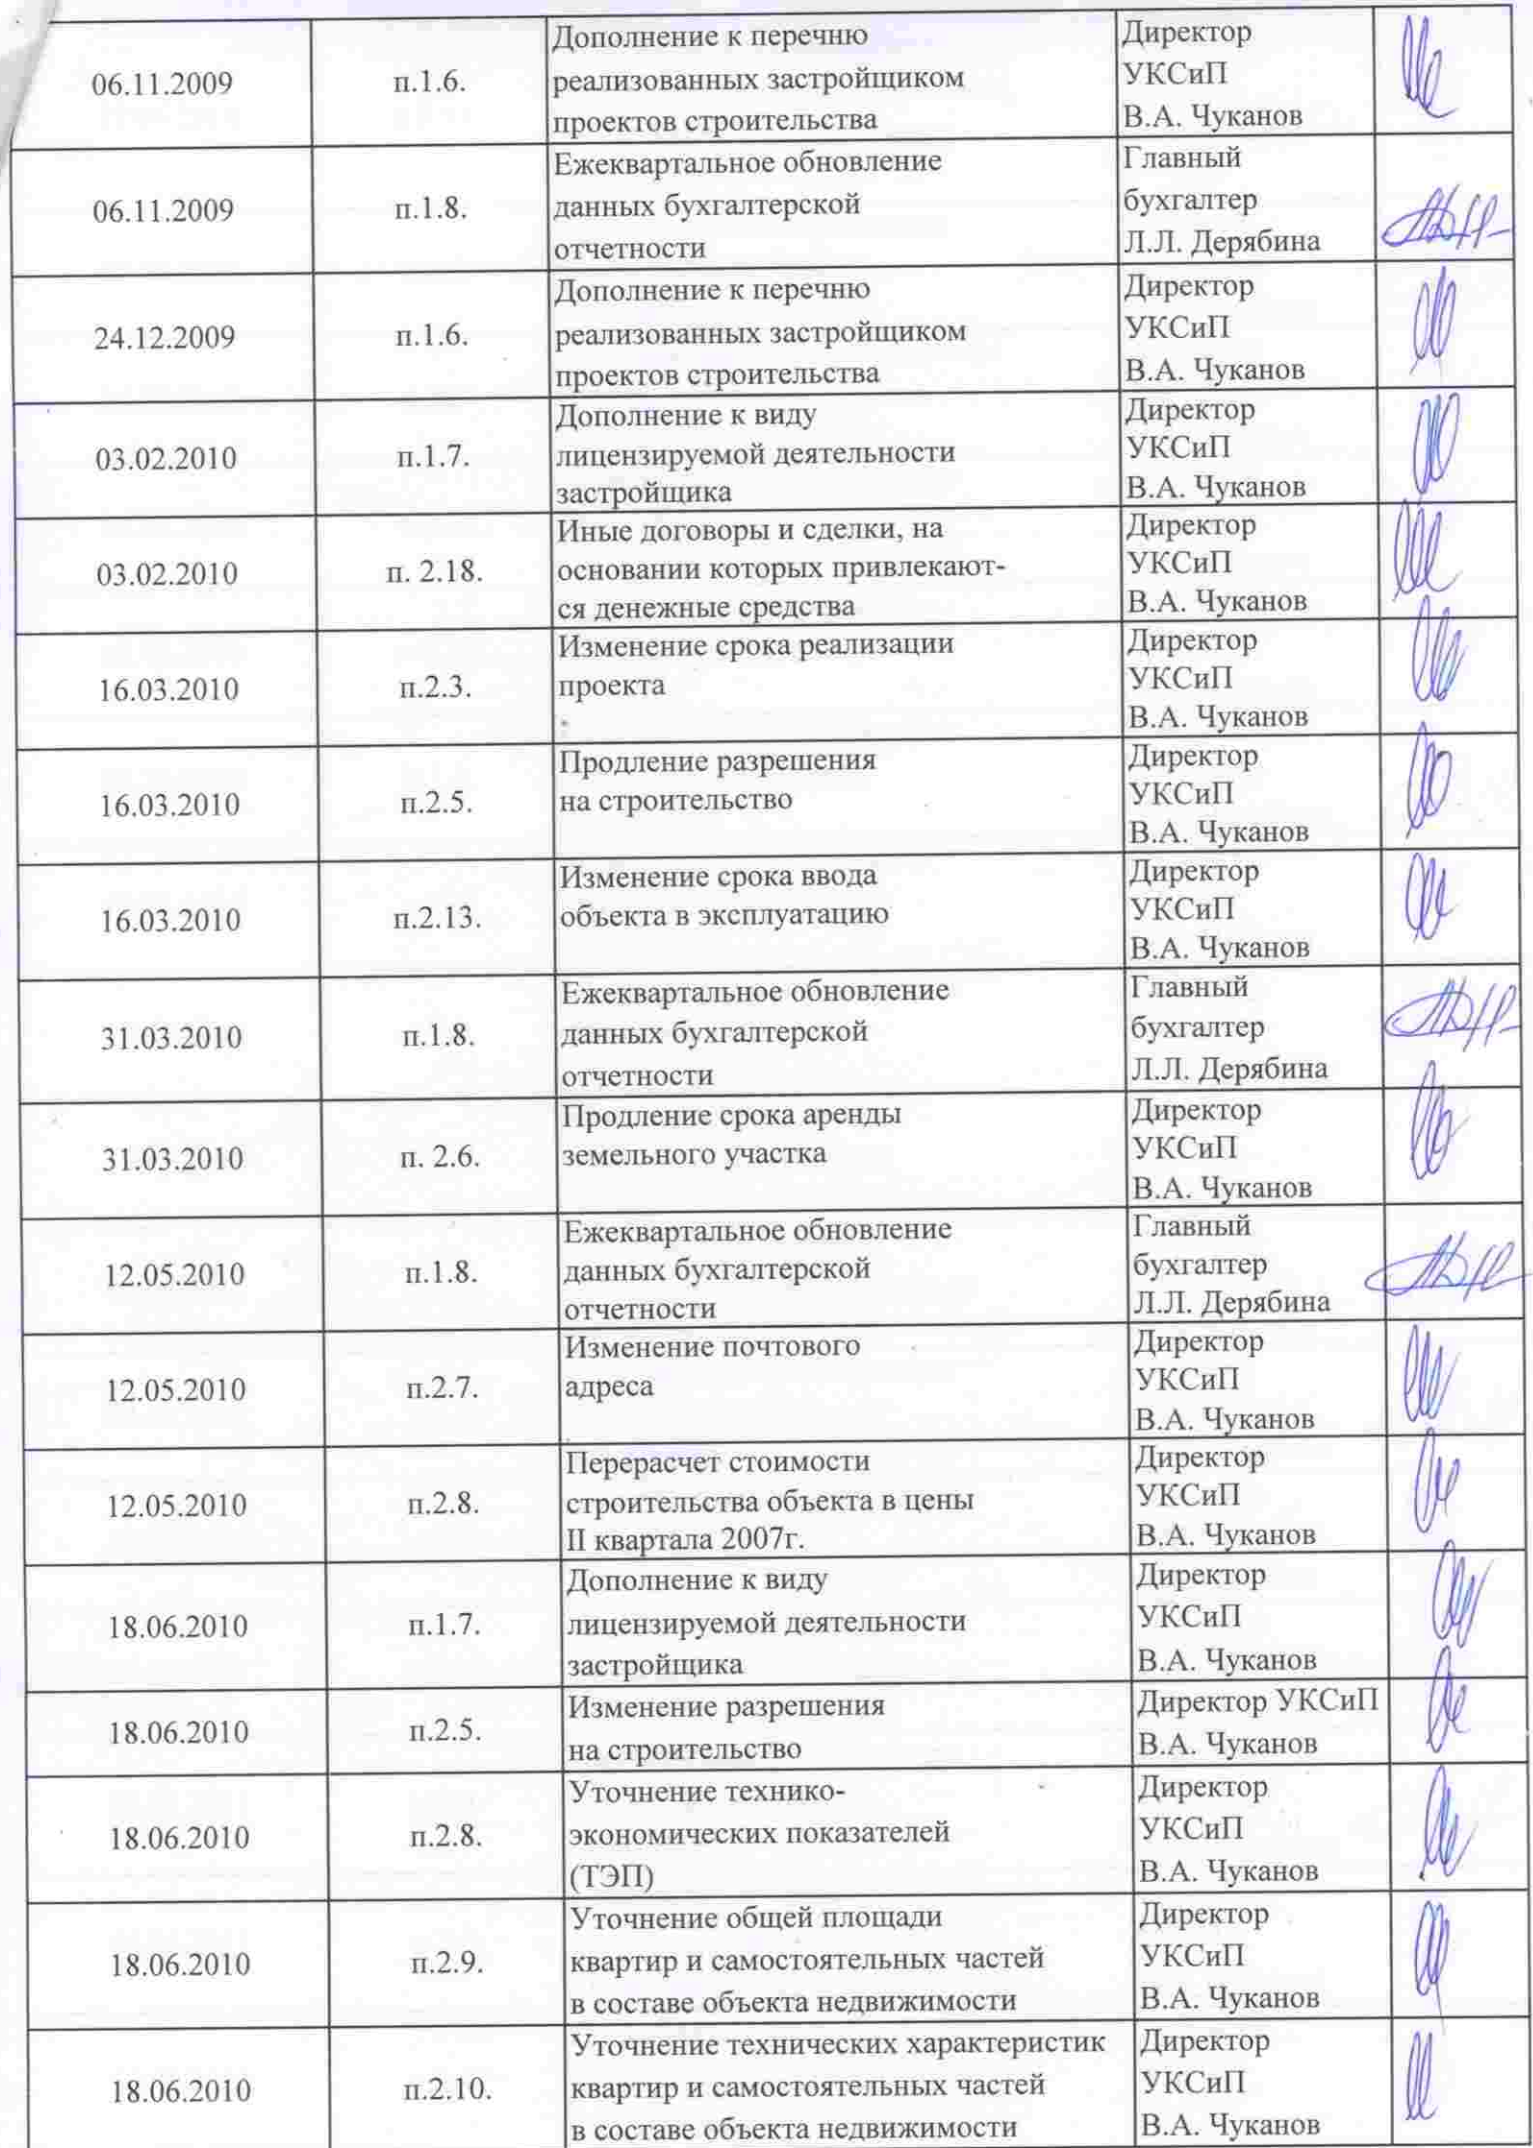 06.11.2009
п.1.6.
Дополнение к перечню
реализованных застройщиком
проектов строительства
Директор
УКСиП
В.А. Чуканов
06.11.2009
п.1.8.
Ежеквартальное обновление
данных бухгалтерской
отчетности
Главный
бухгалтер
Л.Л. Дерябина
24.12.2009
п.1.6.
Дополнение к перечню
реализованных застройщиком
проектов строительства
Директор
УКСиП
В.А. Чуканов
03.02.2010
п.1.7.
Дополнение к виду
лицензируемой деятельности
застройщика
Директор
УКСиП
В.А. Чуканов
03.02.2010
п. 2.18.
Иные договоры и сделки, на
основании которых привлекают-
ся денежные средства
Директор
УКСиП
В.А. Чуканов
16.03.2010
п.2.3.
Изменение срока реализации
проекта
Директор
УКСиП
В.А. Чуканов
16.03.2010
п.2.5.
Продление разрешения
на строительство
Директор
УКСиП
В.А. Чуканов
16.03.2010
п.2.13.
Изменение срока ввода
объекта в эксплуатацию
Директор
УКСиП
В.А. Чуканов
31.03.2010
п.1.8.
Ежеквартальное обновление
данных бухгалтерской
отчетности
Главный
бухгалтер
Л.Л. Дерябина
31.03.2010
п. 2.6.
Продление срока аренды
земельного участка
Директор
УКСиП
В.А. Чуканов
12.05.2010
п.1.8.
Ежеквартальное обновление
данных бухгалтерской
отчетности
Главный
бухгалтер
Л.Л. Дерябина
12.05.2010
п.2.7.
Изменение почтового
адреса
Директор
УКСиП
В.А. Чуканов
12.05.2010
п.2.8.
Перерасчет стоимости
строительства объекта в цены
II квартала 2007г.
Директор
УКСиП
В.А. Чуканов
18.06.2010
п.1.7.
Дополнение к виду
лицензируемой деятельности
застройщика
Директор
УКСиП
В.А. Чуканов
18.06.2010
п.2.5.
Изменение разрешения
на строительство
Директор УКСиП
В.А. Чуканов
18.06.2010
п.2.8.
Уточнение технико-
экономических показателей
(ТЭП)
Директор
УКСиП
В.А. Чуканов
18.06.2010
п.2.9.
Уточнение общей площади
квартир и самостоятельных частей
в составе объекта недвижимости
Директор
УКСиП
В.А. Чуканов
18.06.2010
п.2.10.
Уточнение технических характеристик
квартир и самостоятельных частей
в составе объекта недвижимости
Директор
УКСиП
В.А. Чуканов